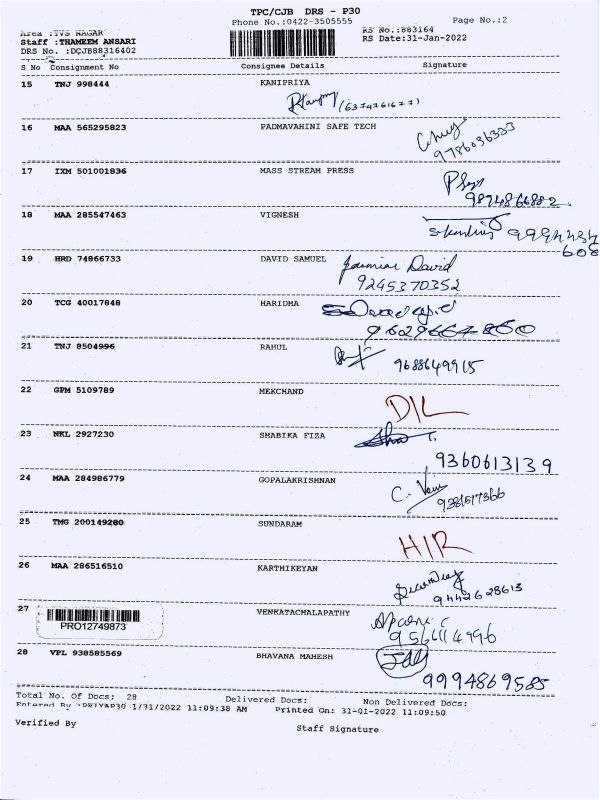 TPC/CJB DRS - P30
Phone No.:0422-3505555 Page No.:2
Area :TVS NAGAR RS No.:883164
Staff :THAMEEM ANSARI RS Date:31-Jan-2022
DRS No. :DCJB88316402
S No Consignment No Consignee Details Signature
15 TNJ 998444 KANIPRIYA
(6374761677)
16 MAA 565295823 PADMAVAHINI SAFE TECH
9786036333
17 IXM 501001836 MASS STREAM PRESS
9874866882
18 MAA 285547463 VIGNESH
19 HRD 74866733 DAVID SAMUEL
David
9245370352
20 TCG 40017848 HARIDHA
9629664800
21 TNJ 8504996 RAHUL
9688649915
22 GPM 5109789 MEKCHAND
D/L
23 NKL 2927230 SHABIKA FIZA
9360613139
24 MAA 284986779 GOPALAKRISHNAN
25 TMG 200149280 SUNDARAM
H/R
26 MAA 286516510 KARTHIKEYAN
9442628613
27 VENKATACHALAPATHY
PRO12749873
9566114996
28 VPL 938585569 BHAVANA MAHESH
9994869585
Total No. Of Docs: 28 Delivered Docs: Non Delivered Docs:
Entered By :PRIYAP30 1/31/2022 11:09:38 AM Printed On: 31-01-2022 11:09:50
Verified By Staff Signature